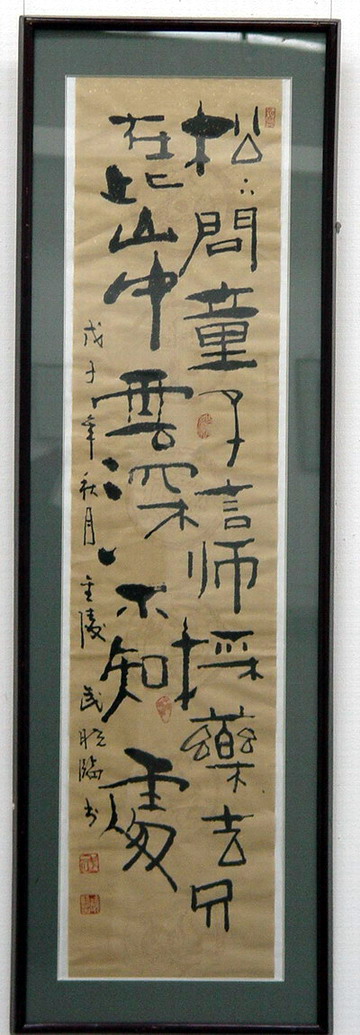 松下問童子言師採藥去只
在此山中雲深不知處
戊子年秋月金陵臨书